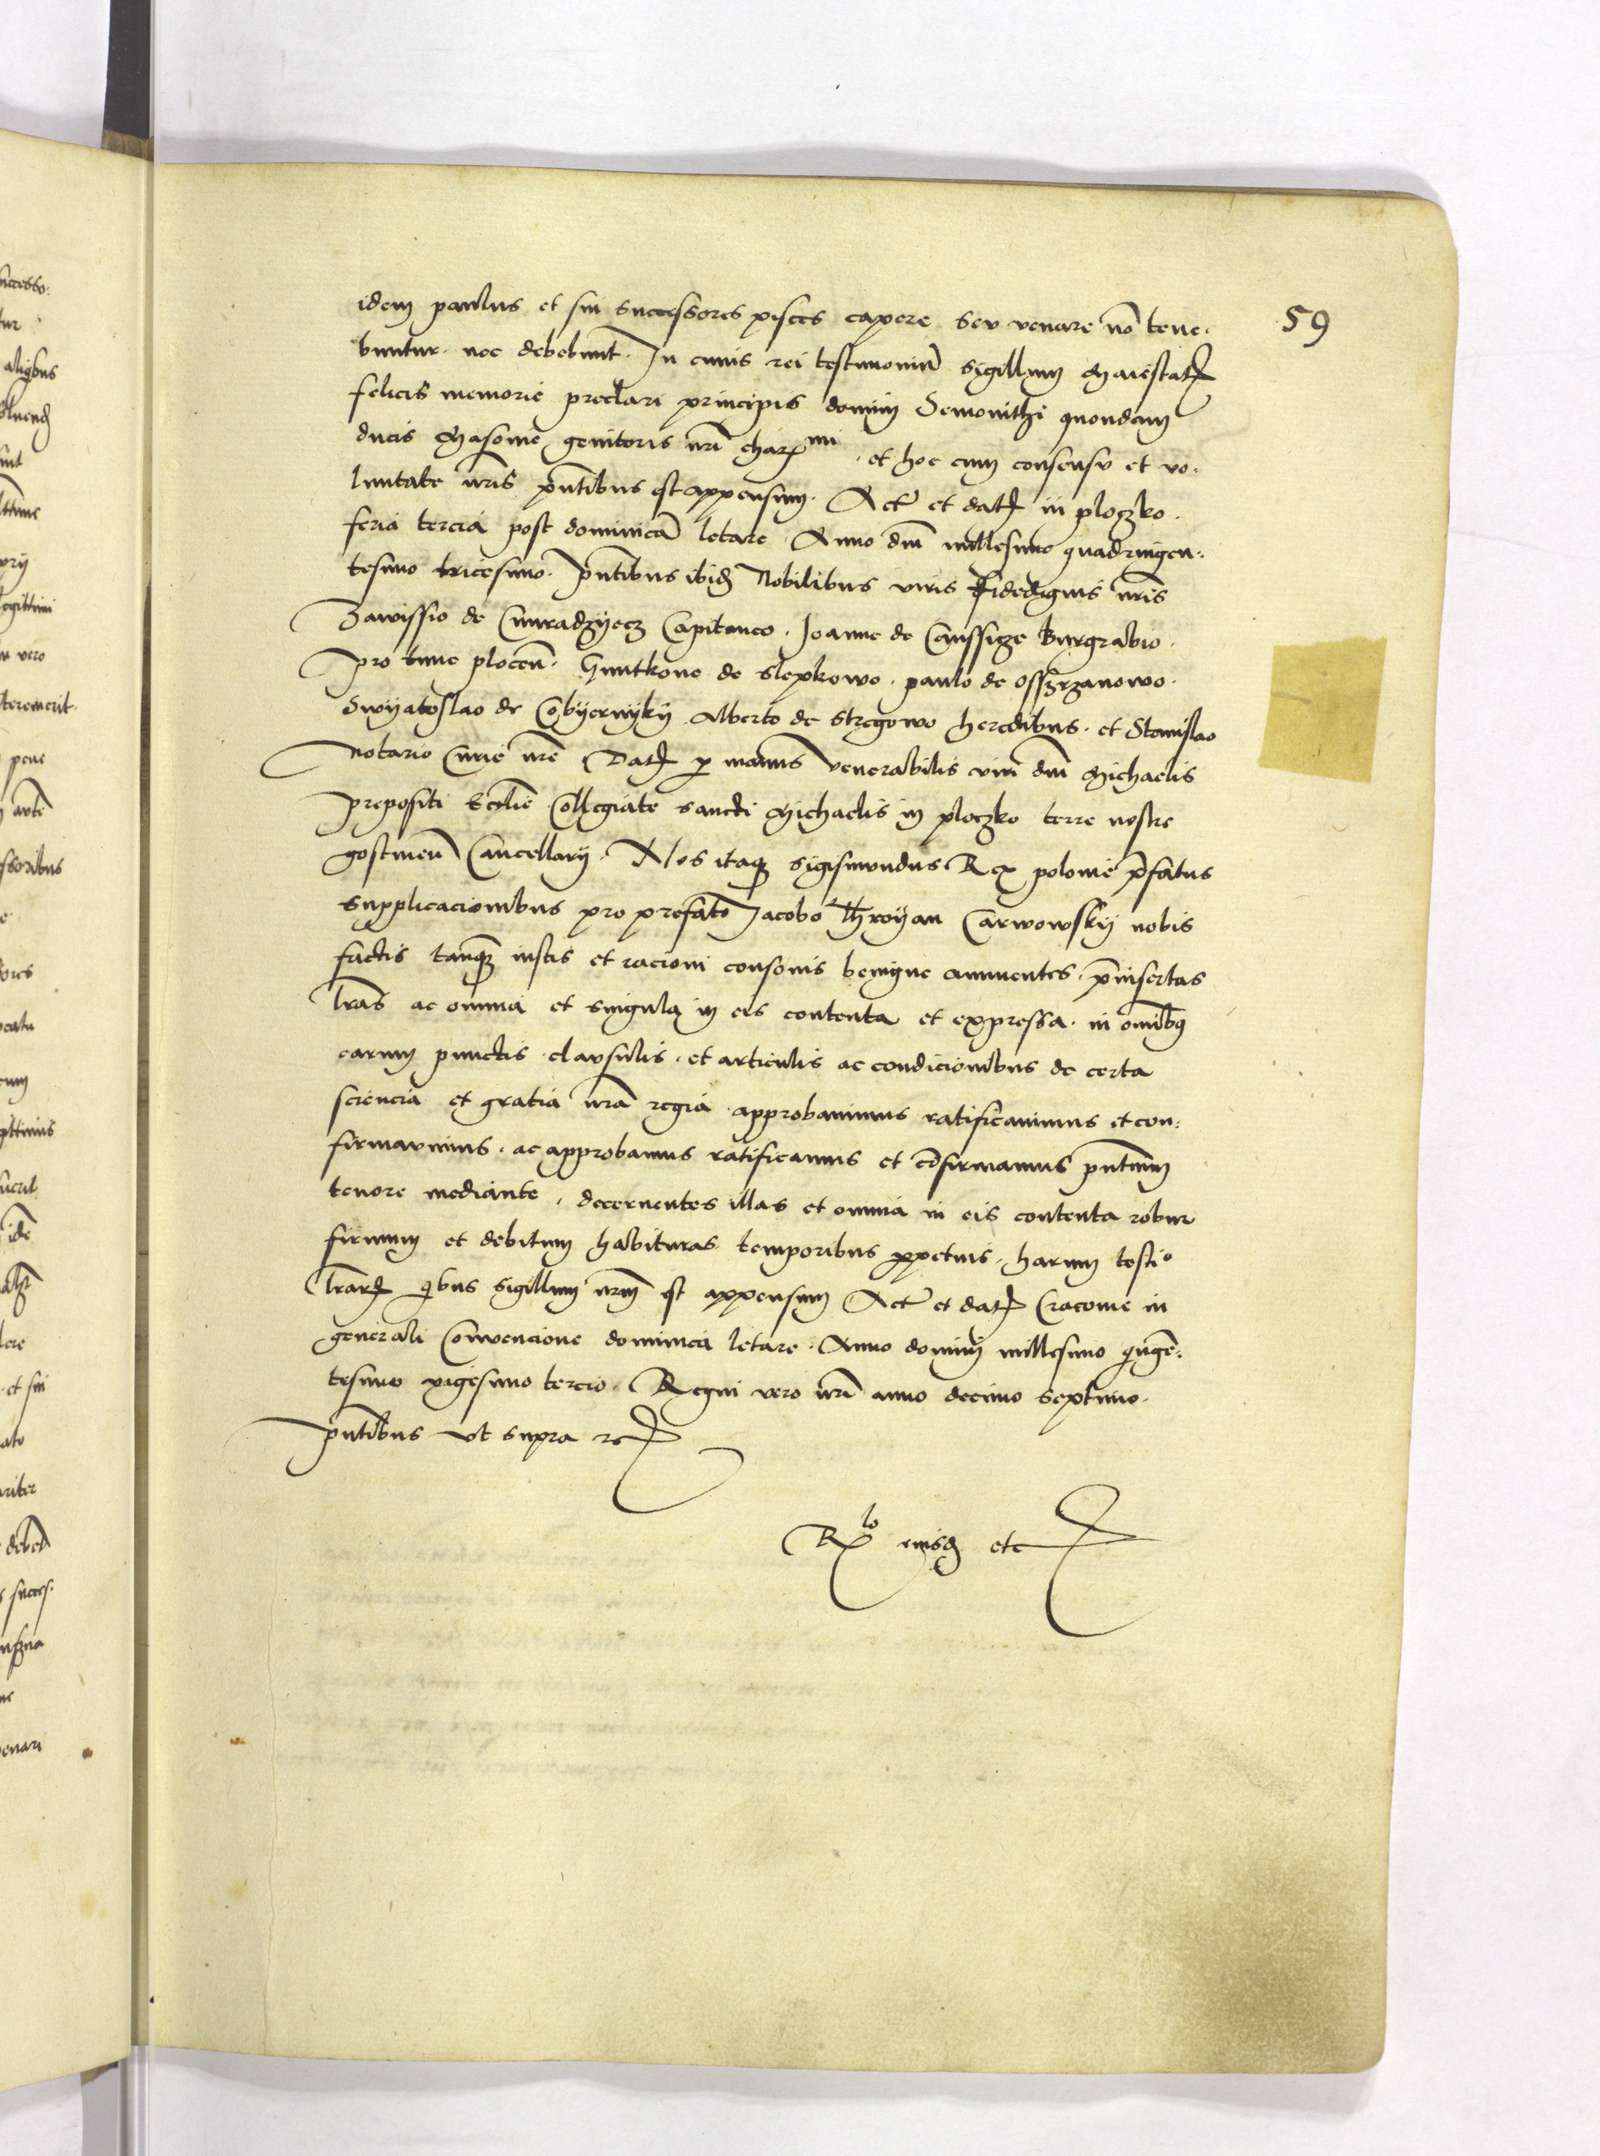 59
idem paulus et sui successores pisces capere seu venare nō tene.
buntur. nec debebunt. In cuius rei testimoniū sigillum Maiestatꝭ
felicis memorie preclari principis domini Semovithi quondam
ducis Masovie genitoris nrī charꝭmi. et hoc cum consensu et vo.
luntate nrīs pn̄tibus est appensum. Actꝭ et datꝭ in ploczko.
feria tercia post dominicā letare. Anno dnī millesimo quadringen.
tesimo tricesimo. pn̄tibus ibidꝫ Nobilibus viris fidedignis nrīs
Zawissio de Cunradzyecz Capitaneo. Joanne de Caussicze Burgrabio.
pro tunc plocen̄. Guntkone de slepkowo. paulo de ossyrzanowo.
Swyatoslao de Cobyernyky Alberto de Strzegowo heredibus. et Stanislao
notario Curie nrē Datꝭ p manus venerabilis viri dnī Michaelis
prepositi Ecclīe Collegiate sancti Michaelis in ploczko terre nostre
gostinen̄ Cancellarij. Nos itaqꝫ sigismundus Rex polonie p̄fatus
supplicacionibus pro prefato Jacobo Throyan Carwowskÿ nobis
factis tanqꝫ iustis et racioni consonis benigne annuentes. p̄insertas
lrās ac omnia et singula in eis contenta et expressa. in omībꝫ
earum punctis clausulis. et articulis ac condicionibus de certa
sciencia et gratia nrā regia approbavimus ratificavimus et con.
firmavimus. ac approbamus ratificamus et cōfirmamus pn̄tium
tenore mediante. decernentes illas et omnia in eis contenta robur
firmum et debitum habituras temporibus ꝑpetuis. harum testio
lrārꝭ qibus sigillum nrm̄ est appensum Actꝭ et datꝭ Cracovie in
generali Convencione dominica letare. Anno domini millesimo qinge̅.
tesimo vigesimo tercio. Regni vero nrī anno decimo septimo.
pn̄tibus ut supra ꝛcꝭ
Rlo eiusdꝫ etc